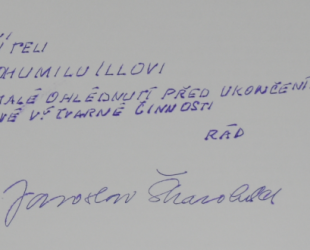 TELI
HUMILU ILLOVI
MALÉ OHLÉDNUTÍ PŘED UKONČENÍ
VÉ VÝTVARNÉ ČINNOSTI
RÁD
Jaroslav